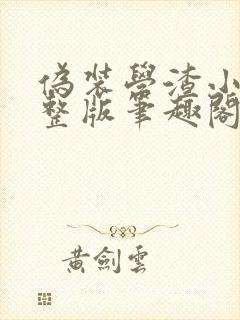 偽裝學渣小
整版筆趣閣
黃劍雲